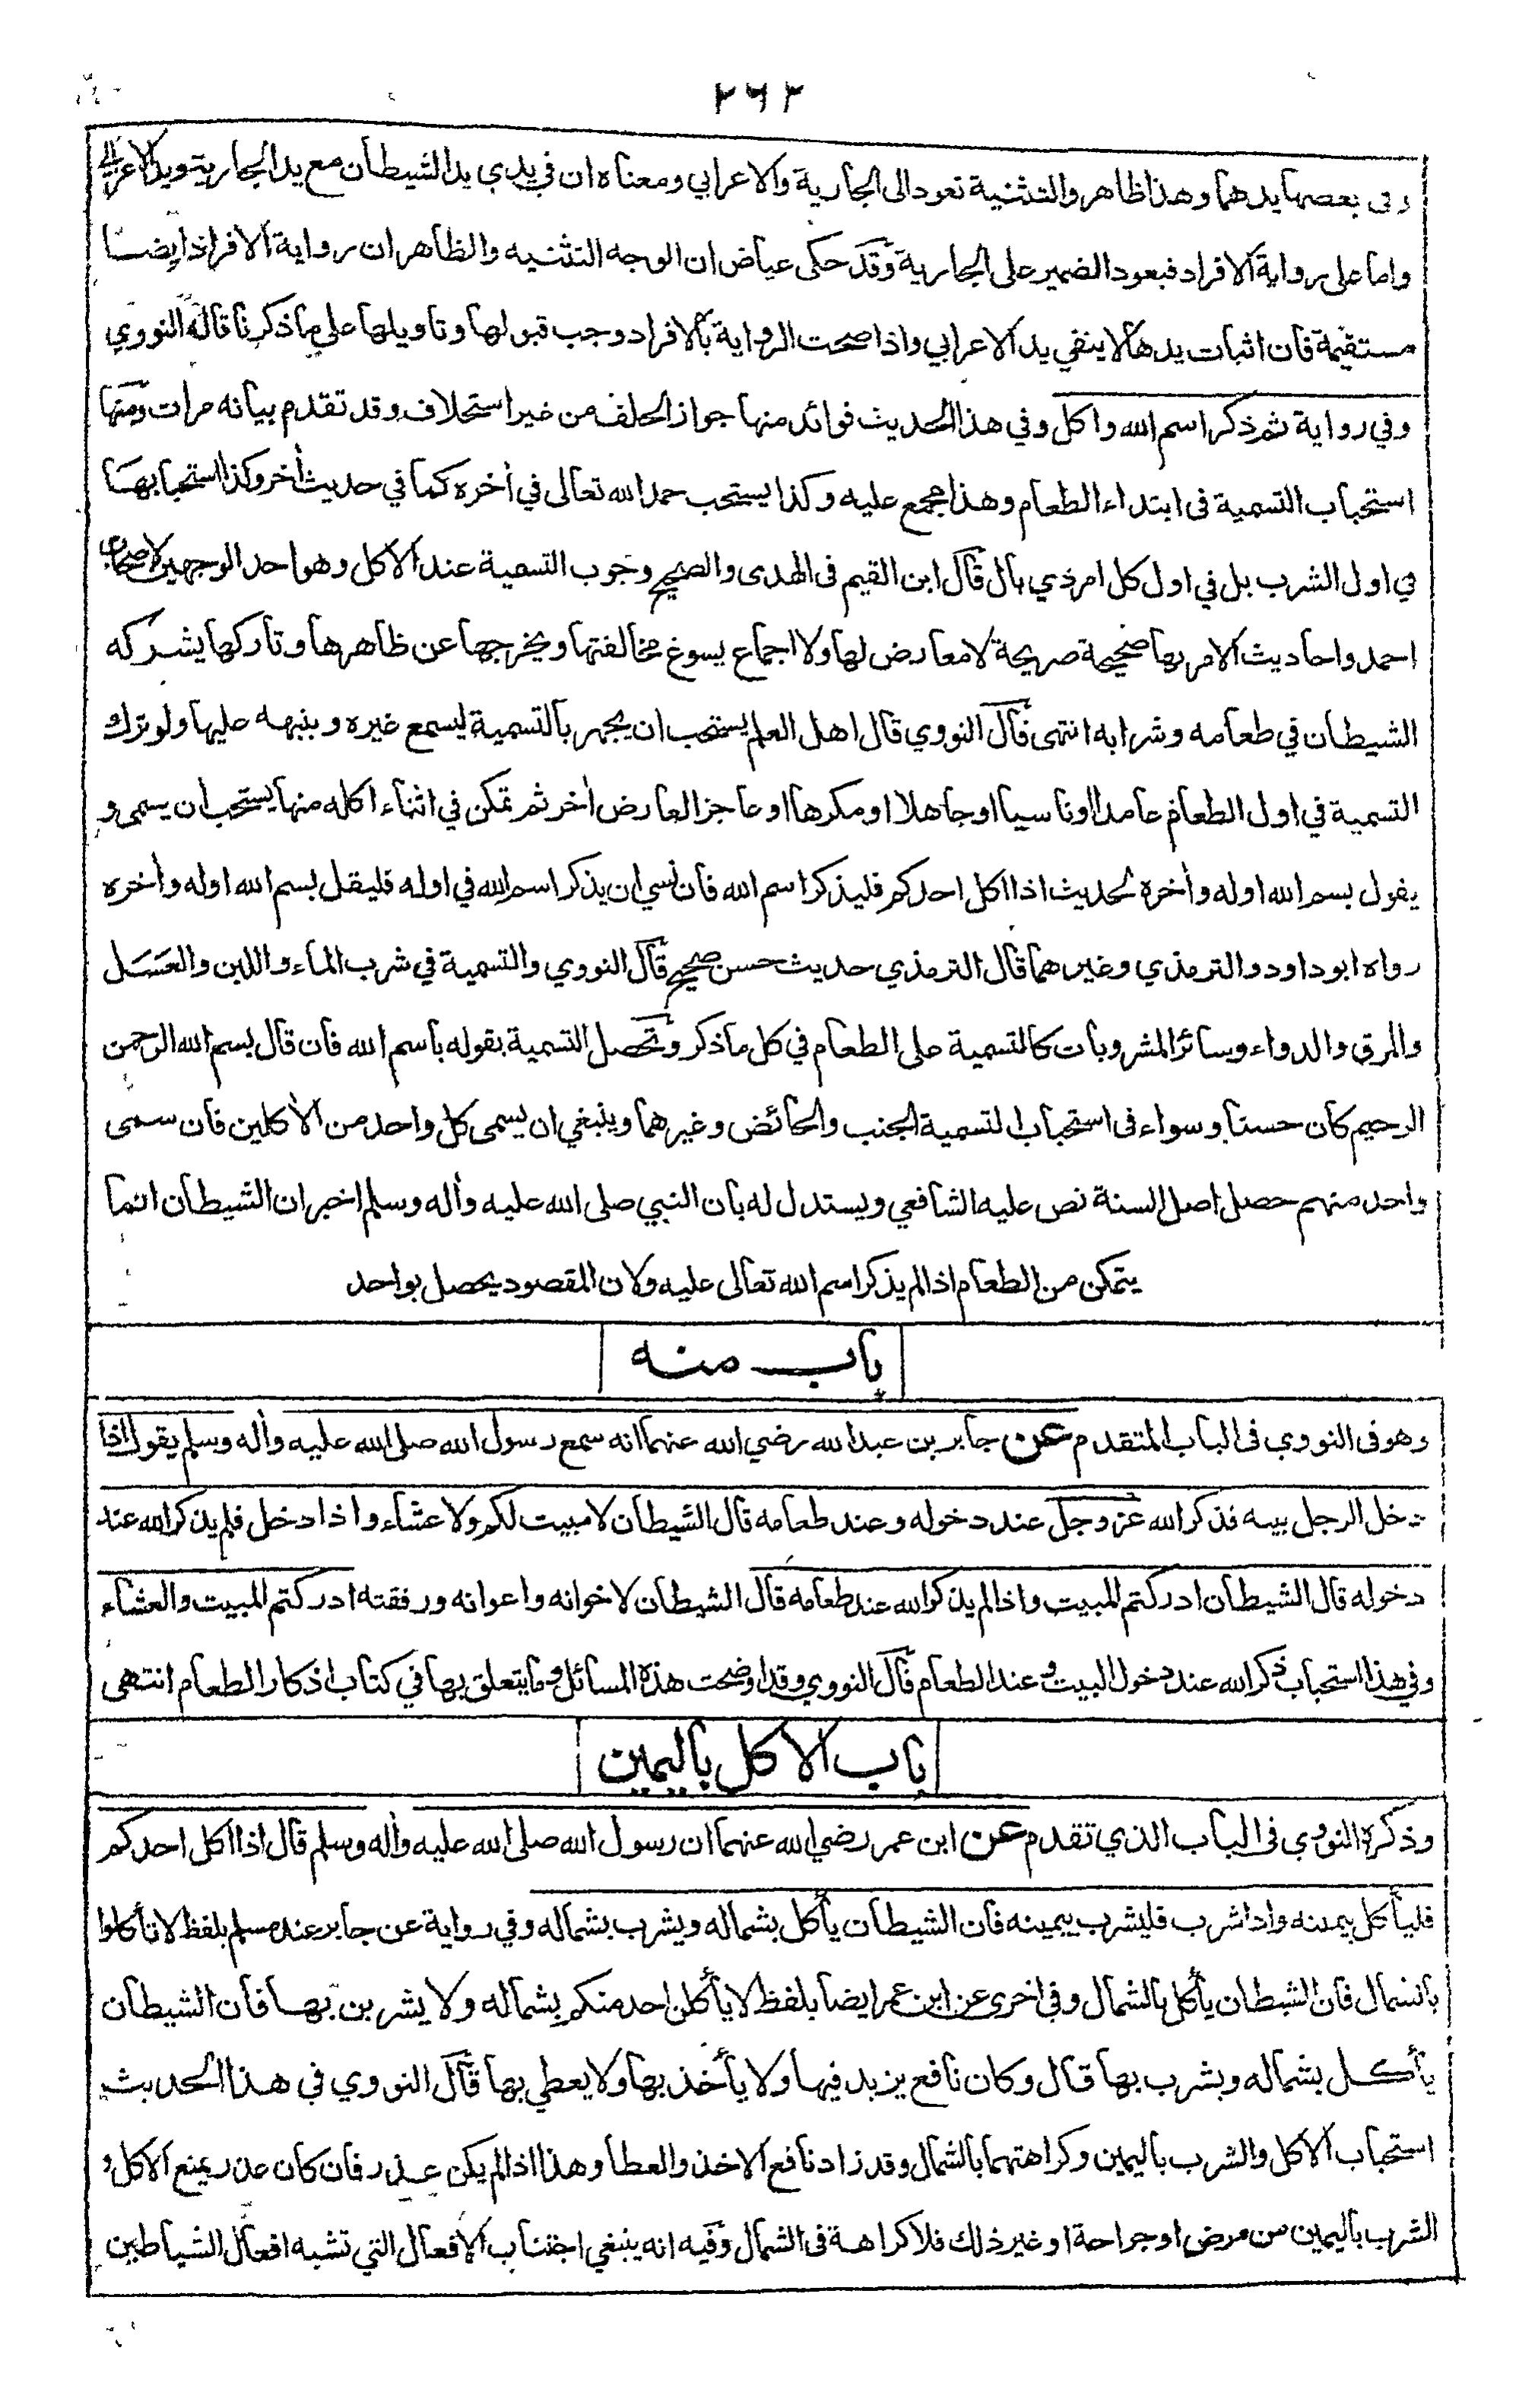 ٢٦٢
وفى بعضها يدهما وهذا ظاهر والتثنية تعود الى الجارية والاعرابي ومعناه ان في يدي يد الشيطان مع يد الجارية ويد الاعرابي
واما على رواية الافراد فيعود الضمير على الجارية وقد حكى عياض ان الوجه التثنيه والظاهر ان رواية الافراد ايضا
مستقيمة فان اثبات يدها لا ينفي يد الاعرابي واذا صحت الرواية بالافراد وجب قبولها وتاويلها على ما ذكرنا قاله النووي
وفي رواية ثم ذكر اسم الله واكل وفي هذا الحديث فوائد منها جواز الحلف من غير استحلاف وقد تقدم بيانه مرات ومنها
استحباب التسمية فى ابتداء الطعام وهذا مجمع عليه وكذا يستحب حمد الله تعالى في أخره كما في حديث أخر وكذا استحبابها
في اول الشرب بل في اول كل امر ذي بال قال ابن القيم فى الهدى والصحيح وجوب التسمية عند الاكل وهو احد الوجهين لاصحاب
احمد واحاديث الامر بها صحيحة صريحة لا معارض لها ولا اجماع يسوغ مخالفتها ويخرجها عن ظاهرها وتاركها يشركه
الشيطان في طعامه وشرابه انتهى قال النووي قال اهل العلم يستحب ان يجهر بالتسمية ليسمع غيره وينبهه عليها ولو ترك
التسمية في اول الطعام عامدا اوناسيا اوجاهلا او مكرها او عاجزا لعارض أخر ثم تمكن في اثناء اكله منها يستحب ان يسمى و
يقول بسم الله اوله وأخرة لحديث اذا اكل احدكم فليذكر اسم الله فان نسي ان يذكر اسم الله في اوله فليقل بسم الله اوله وأخره
رواه ابو داود والترمذي وغيرهما قال الترمذي حديث حسن صحيح قال النووي والتسمية في شرب الماء واللبن والعسل
والمرق والدواء وسائر المشروبات كالتسمية على الطعام في كل ما ذكر وتحصل التسمية بقوله باسم الله فان قال بسم الله الرحمن
الرحيم كان حسنا وسواء فى استحباب التسمية الجنب والحائض وغيرهما وينبغي ان يسمى كل واحد من الأكلين فان سمى
واحد منهم حصل اصل السنة نص عليه الشافعي ويستدل له بان النبي صلى الله عليه وأله وسلم اخبر ان الشيطان انما
يتمكن من الطعام اذا لم يذكر اسم الله تعالى عليه ولان المقصود يحصل بواحد
باب منه
وهو فى النووي فى الباب المتقدم عن جابر بن عبد الله رضي الله عنهما انه سمع رسول الله صلى الله عليه وأله وسلم يقول اذا
دخل الرجل بيته فذكر الله عز وجل عند دخوله وعند طعامه قال الشيطان لا مبيت لكم ولا عشاء واذا دخل فلم يذكر الله عند
دخوله قال الشيطان ادركتم المبيت واذا لم يذكر الله عند طعامه قال الشيطان لاخوانه واعوانه ورفقته ادركتم المبيت والعشاء
وفي هذا استحباب ذكر الله عند دخول البيت وعند الطعام قال النووي وقد اوضحت هذه المسائل وما يتعلق بها في كتاب اذكار الطعام انتهى
باب الاكل باليمين
وذكره النووي فى الباب الذي تقدم عن ابن عمر رضي الله عنهما ان رسول الله صلى الله عليه وأله وسلم قال اذا اكل احدكم
فليأكل بيمينه واذا شرب فليشرب بيمينه فان الشيطان يأكل بشماله ويشرب بشماله وفي رواية عن جابر عند مسلم بلفظ لا تأكلوا
بالشمال فان الشيطان يأكل بالشمال وفي اخرى عن ابن عمر ايضا بلفظ لا يأكلن احد منكم بشماله ولا يشربن بها فان الشيطان
يأكل بشماله ويشرب بها قال وكان نافع يزيد فيها ولا يأخذ بها ولا يعطي بها قال النووي في هذا الحديث
استحباب الاكل والشرب باليمين وكراهتهما بالشمال وقد زاد نافع الاخذ والعطا وهذا اذا لم يكن عذر فان كان عذر يمنع الاكل و
الشرب باليمين من مرض او جراحة او غير ذلك فلا كراهة فى الشمال وفيه انه ينبغي اجتناب الافعال التي تشبه افعال الشياطين